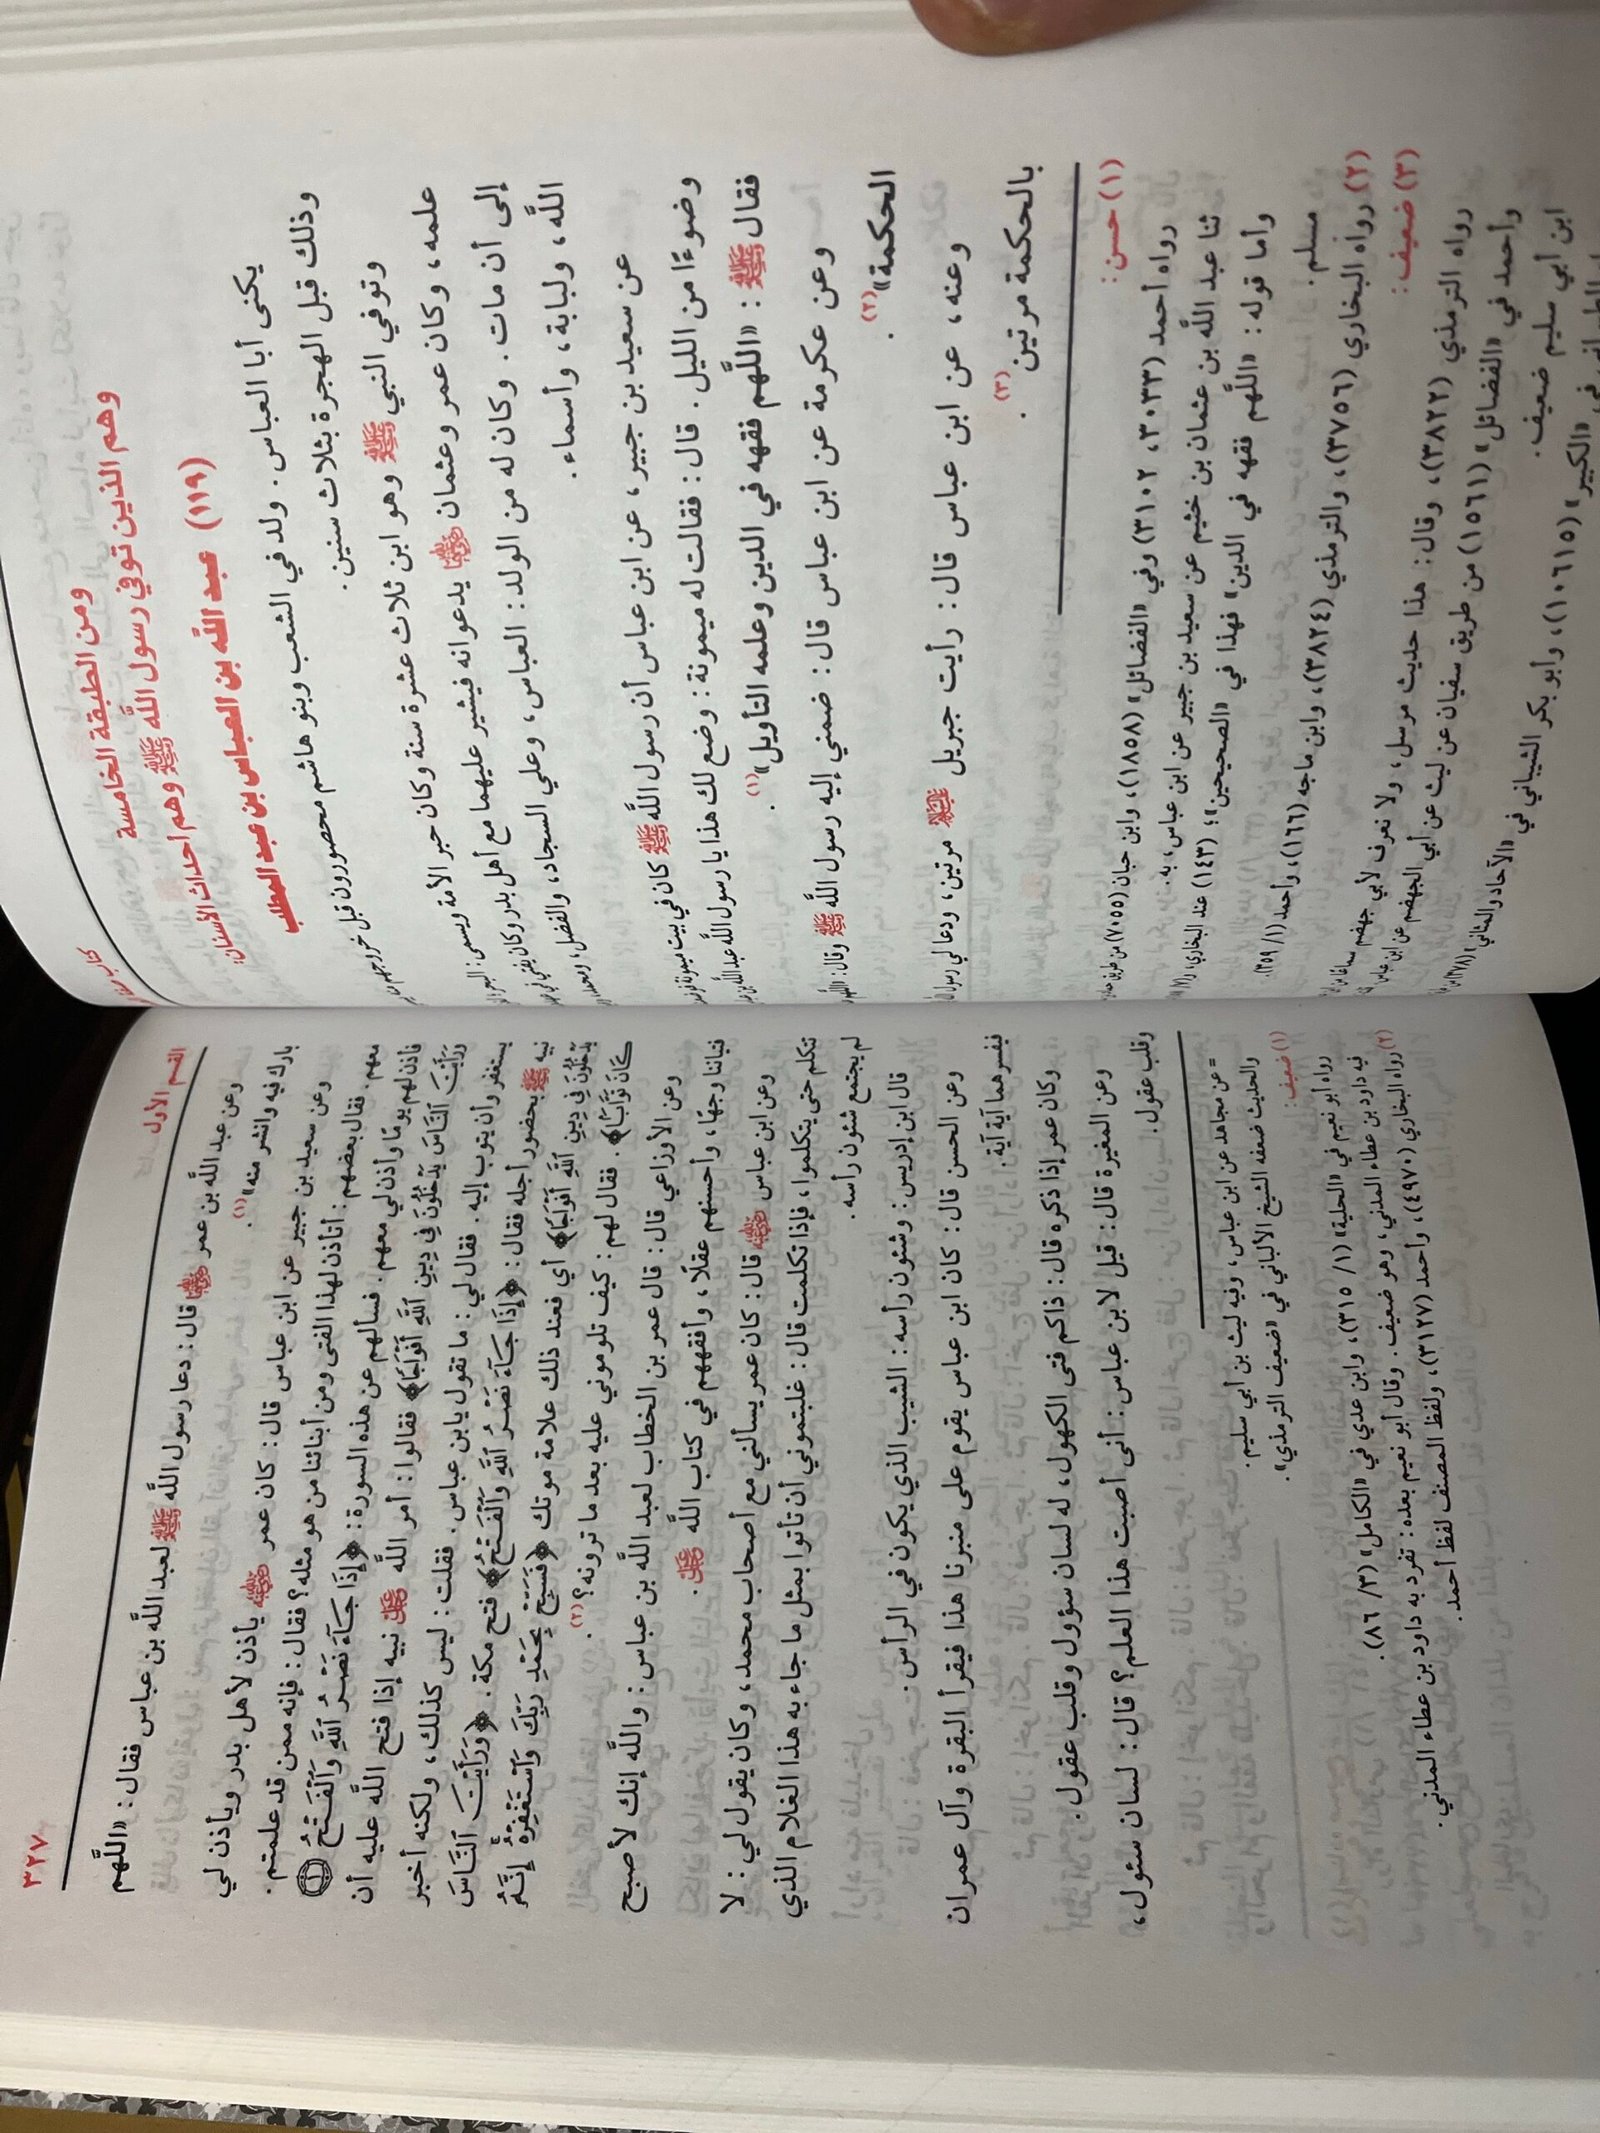 كتاب
ومن الطبقة الخامسة
وهم الذين توفي رسول اللَّه ﷺ وهم أحداث الأسنان:
(١١٩) عبد اللَّه بن العباس بن عبد المطلب
يكنى أبا العباس. ولد في الشعب وبنو هاشم محصورون قبل خروجهم
وذلك قبل الهجرة بثلاث سنين.
وتوفي النبي ﷺ وهو ابن ثلاث عشرة سنة وكان حبر الأمة ويسمى: البحر
علمه، وكان عمر وعثمان رضي الله عنهما يدعوانه فيشير عليهما مع أهل بدر وكان يفتي في
إلى أن مات. وكان له من الولد: العباس، وعلي السجاد، والفضل، ومحمد،
اللَّه، ولبابة، وأسماء.
عن سعيد بن جبير، عن ابن عباس أن رسول اللَّه ﷺ كان في بيت ميمونة
وضوءًا من الليل. قال: فقالت له ميمونة: وضع لك هذا يا رسول اللَّه عبد اللَّه بن
فقال ﷺ: «اللَّهم فقهه في الدين وعلمه التأويل»(١).
وعن عكرمة عن ابن عباس قال: ضمني إليه رسول اللَّه ﷺ وقال: «اللَّهم
الحكمة»(٢).
وعنه، عن ابن عباس قال: رأيت جبريل عليه السلام مرتين، ودعا لي رسول
بالحكمة مرتين(٣).
(١) حسن:
رواه أحمد (٣٠٣٣، ٣١٠٢) وفي «الفضائل» (١٨٥٨)، وابن حبان (٧٠٥٥) من طريق
ثنا عبد اللَّه بن عثمان بن خثيم عن سعيد بن جبير عن ابن عباس، به.
وأما قوله: «اللَّهم فقهه في الدين» فهذا في «الصحيحين»؛ (١٤٣) عند البخاري،
مسلم.
(٢) رواه البخاري (٣٧٥٦)، والترمذي (٣٨٢٤)، وابن ماجه (١٦٦)، وأحمد (١/ ٣٥٩).
(٣) ضعيف:
رواه الترمذي (٣٨٢٢)، وقال: هذا حديث مرسل، ولا نعرف لأبي جهضم سماعًا من
وأحمد في «الفضائل» (١٥٦١) من طريق سفيان عن ليث عن أبي الجهضم عن ابن عباس
ابن أبي سليم ضعيف.
في «الكبير» (١٠٦١٥)، وأبو بكر الشيباني في «الآحاد والمثاني» (٣٧٨)
القسم الأول
٣٢٧
وعن عبد اللَّه بن عمر رضي الله عنهما قال: دعا رسول اللَّه ﷺ لعبد اللَّه بن عباس فقال: «اللَّهم
بارك فيه وانشر منه»(١).
وعن سعيد بن جبير عن ابن عباس قال: كان عمر رضي الله عنه يأذن لأهل بدر ويأذن لي
معهم. فقال بعضهم: أتأذن لهذا الفتى ومن أبنائنا من هو مثله؟ فقال: فإنه ممن قد علمتم.
فأذن لهم يومًا وأذن لي معهم. فسألهم عن هذه السورة: ﴿إِذَا جَاءَ نَصْرُ اللَّهِ وَالْفَتْحُ ۝١
وَرَأَيْتَ النَّاسَ يَدْخُلُونَ فِي دِينِ اللَّهِ أَفْوَاجًا﴾ فقالوا: أمر اللَّه عز وجل نبيه إذا فتح اللَّه عليه أن
يستغفر وأن يتوب إليه. فقال لي: ما تقول يا بن عباس. فقلت: ليس كذلك، ولكنه أخبر
نبيه ﷺ بحضور أجله فقال: ﴿إِذَا جَاءَ نَصْرُ اللَّهِ وَالْفَتْحُ﴾ فتح مكة: ﴿وَرَأَيْتَ النَّاسَ
يَدْخُلُونَ فِي دِينِ اللَّهِ أَفْوَاجًا﴾ أي فعند ذلك علامة موتك ﴿فَسَبِّحْ بِحَمْدِ رَبِّكَ وَاسْتَغْفِرْهُ إِنَّهُ
كَانَ تَوَّابًا﴾. فقال لهم: كيف تلوموني عليه بعد ما ترونه؟(٢).
وعن الأوزاعي قال: قال عمر بن الخطاب لعبد اللَّه بن عباس: واللَّه إنك لأصبح
فتياننا وجهًا، وأحسنهم عقلًا، وأفقههم في كتاب اللَّه عز وجل.
وعن ابن عباس رضي الله عنه قال: كان عمر يسألني مع أصحاب محمد، وكان يقول لي: لا
تتكلم حتى يتكلموا، فإذا تكلمت قال: غلبتموني أن تأتوا بمثل ما جاء به هذا الغلام الذي
لم يجتمع شئون رأسه.
قال ابن إدريس: وشئون رأسه: الشيب الذي يكون في الرأس.
وعن الحسن قال: كان ابن عباس يقوم على منبرنا هذا فيقرأ البقرة وآل عمران
فيفسرهما آية آية.
وكان عمر إذا ذكره قال: ذاكم فتى الكهول، له لسان سؤول وقلب عقول.
وعن المغيرة قال: قيل لابن عباس: أنى أصبت هذا العلم؟ قال: لسان سئول،
وقلب عقول.
= عن مجاهد عن ابن عباس، وفيه ليث بن أبي سليم.
والحديث ضعفه الشيخ الألباني في «ضعيف الترمذي».
(١) ضعيف:
رواه أبو نعيم في «الحلية» (١/ ٣١٥)، وابن عدي في «الكامل» (٣/ ٨٦).
فيه داود بن عطاء المدني، وهو ضعيف. وقال أبو نعيم بعده: تفرد به داود بن عطاء المدني.
(٢) رواه البخاري (٤٩٧٠)، وأحمد (٣١٢٧)، ولفظ المصنف لفظ أحمد.